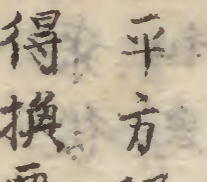 平方
得換